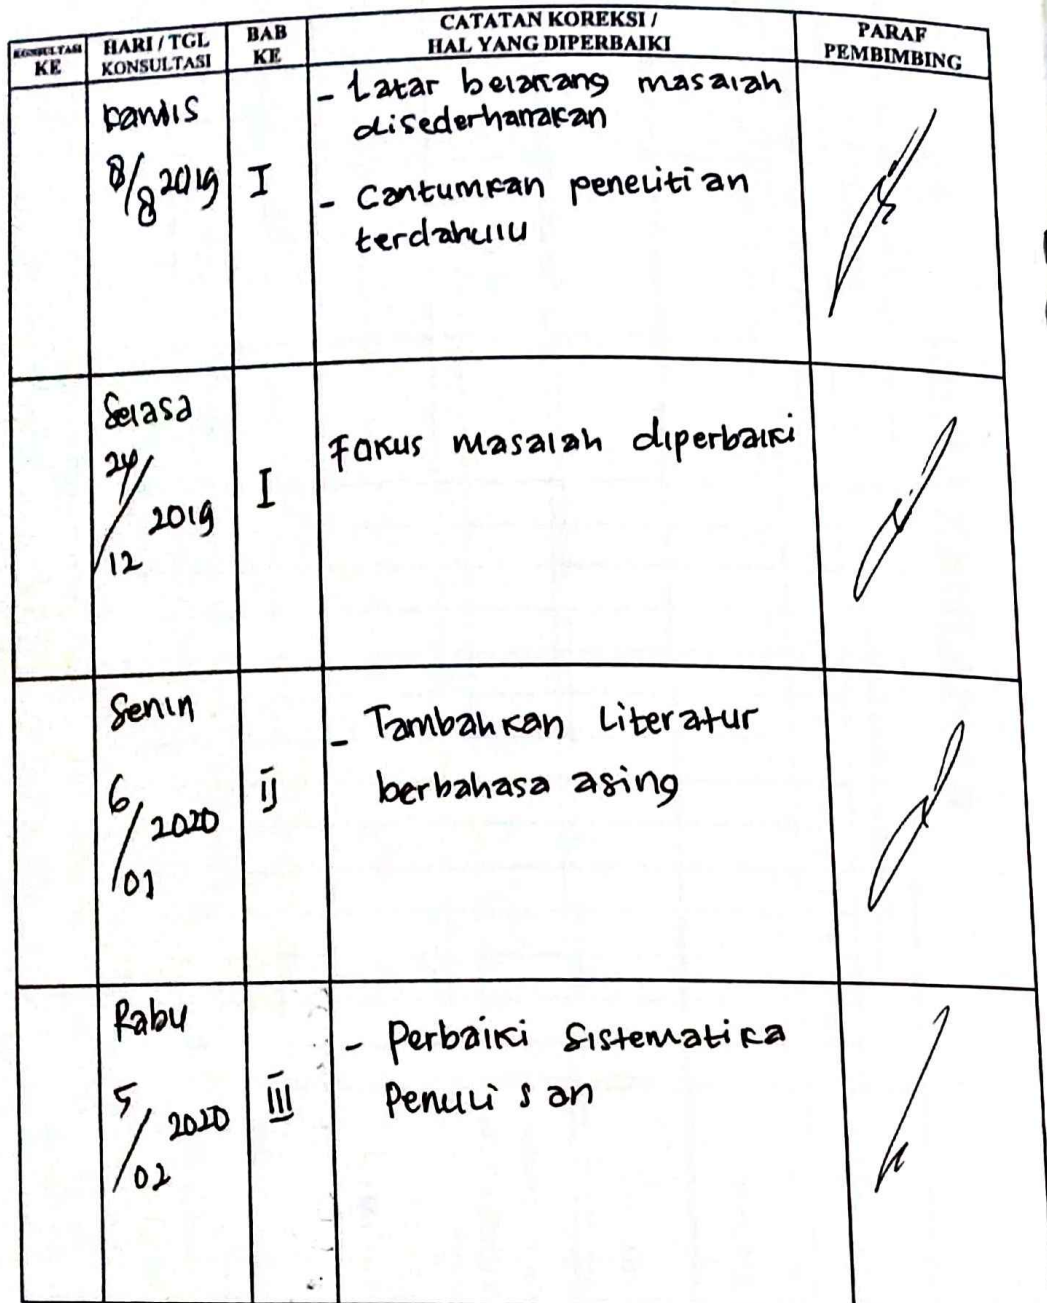 KONSULTASI KE
HARI / TGL KONSULTASI
BAB KE
CATATAN KOREKSI / HAL YANG DIPERBAIKI
PARAF PEMBIMBING
Kamis
8/8 2019
I
- Latar belakang masalah
disederhanakan
- Cantumkan penelitian
terdahulu
Selasa
24/12 2019
I
Fokus masalah diperbaiki
Senin
6/01 2020
II
- Tambahkan Literatur
berbahasa asing
Rabu
5/02 2020
III
- Perbaiki Sistematika
Penulisan